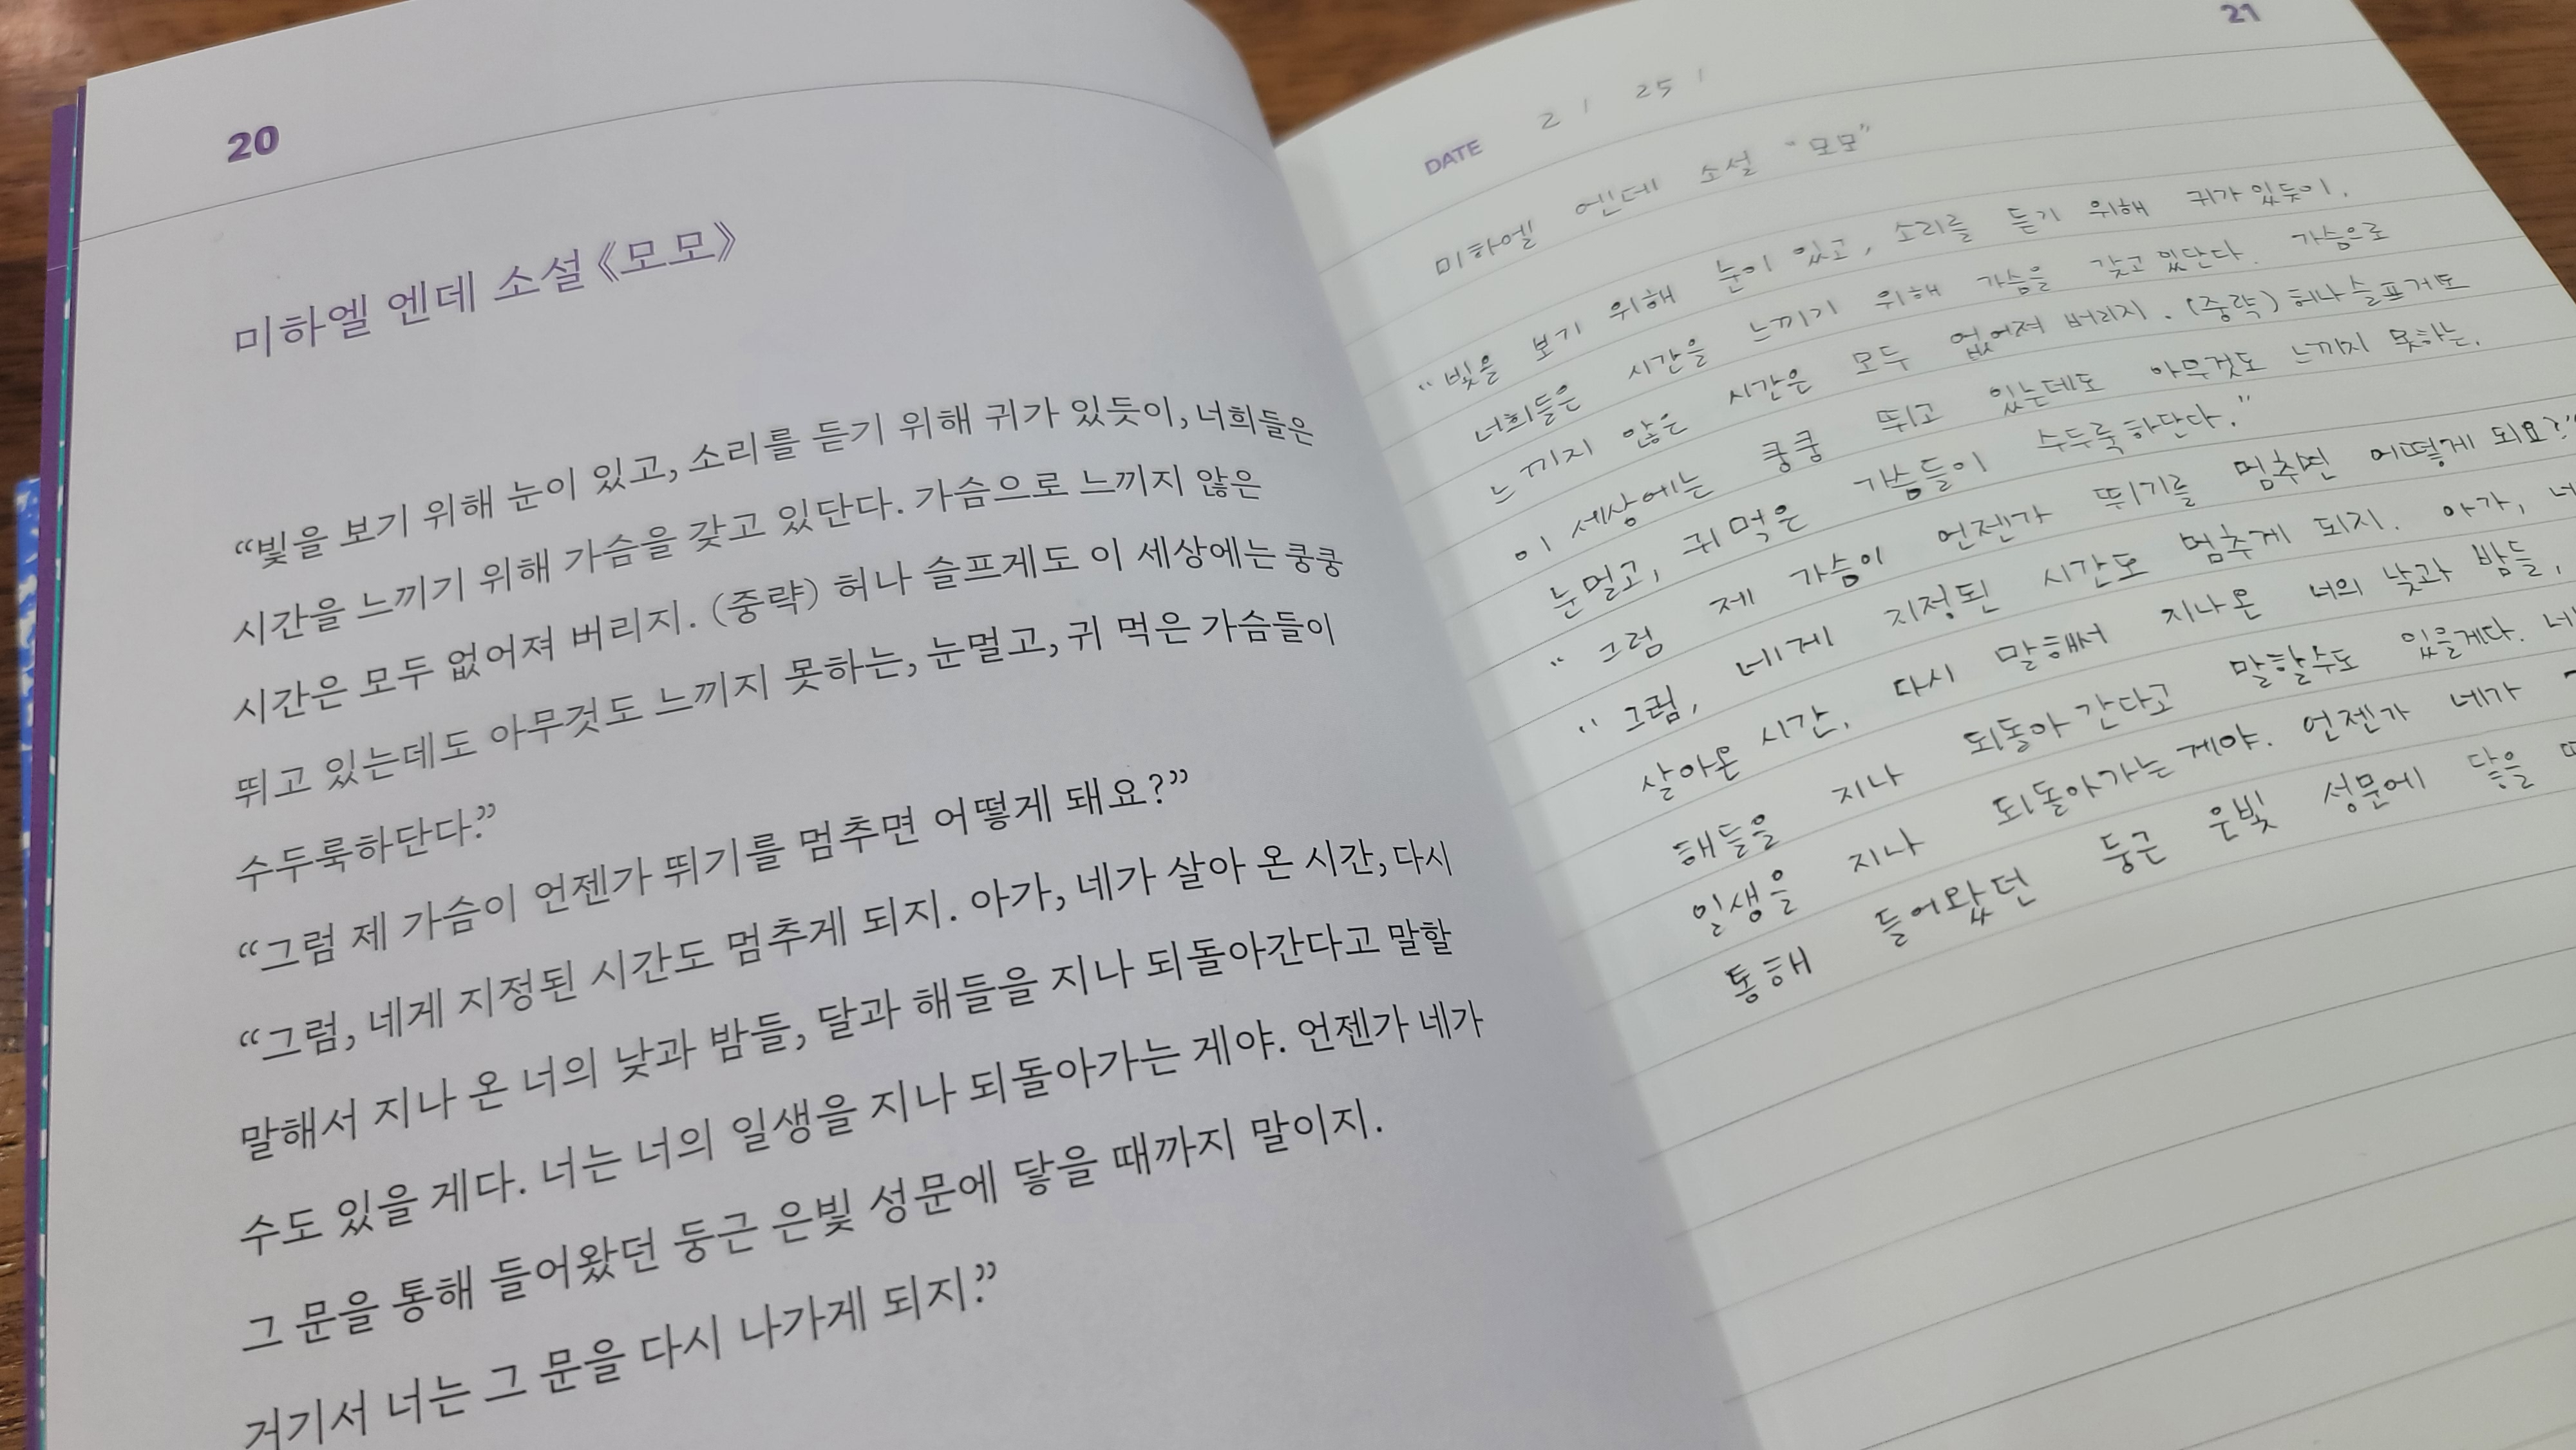 20
미하엘 엔데 소설 《모모》
“빛을 보기 위해 눈이 있고, 소리를 듣기 위해 귀가 있듯이, 너희들은
시간을 느끼기 위해 가슴을 갖고 있단다. 가슴으로 느끼지 않은
시간은 모두 없어져 버리지. (중략) 허나 슬프게도 이 세상에는 쿵쿵
뛰고 있는데도 아무것도 느끼지 못하는, 눈멀고, 귀 먹은 가슴들이
수두룩하단다.”
“그럼 제 가슴이 언젠가 뛰기를 멈추면 어떻게 돼요?”
“그럼, 네게 지정된 시간도 멈추게 되지. 아가, 네가 살아 온 시간, 다시
말해서 지나 온 너의 낮과 밤들, 달과 해들을 지나 되돌아간다고 말할
수도 있을 게다. 너는 너의 일생을 지나 되돌아가는 게야. 언젠가 네가
그 문을 통해 들어왔던 둥근 은빛 성문에 닿을 때까지 말이지.
거기서 너는 그 문을 다시 나가게 되지.”
21
DATE 2 / 25 /
미하엘 엔데 소설 “모모”
“빛을 보기 위해 눈이 있고, 소리를 듣기 위해 귀가 있듯이.
너희들은 시간을 느끼기 위해 가슴을 갖고 있단다. 가슴으로
느끼지 않은 시간은 모두 없어져 버리지. (중략) 허나 슬프게도
이 세상에는 쿵쿵 뛰고 있는데도 아무것도 느끼지 못하는,
눈멀고, 귀 먹은 가슴들이 수두룩하단다.”
“그럼 제 가슴이 언젠가 뛰기를 멈추면 어떻게 되요?”
“그럼, 네게 지정된 시간도 멈추게 되지. 아가,
살아온 시간, 다시 말해서 지나온 너의 낮과 밤들,
해들을 지나 되돌아 간다고 말할수도 있을게다.
일생을 지나 되돌아가는 게야. 언젠가 네가
통해 들어왔던 둥근 은빛 성문에 닿을